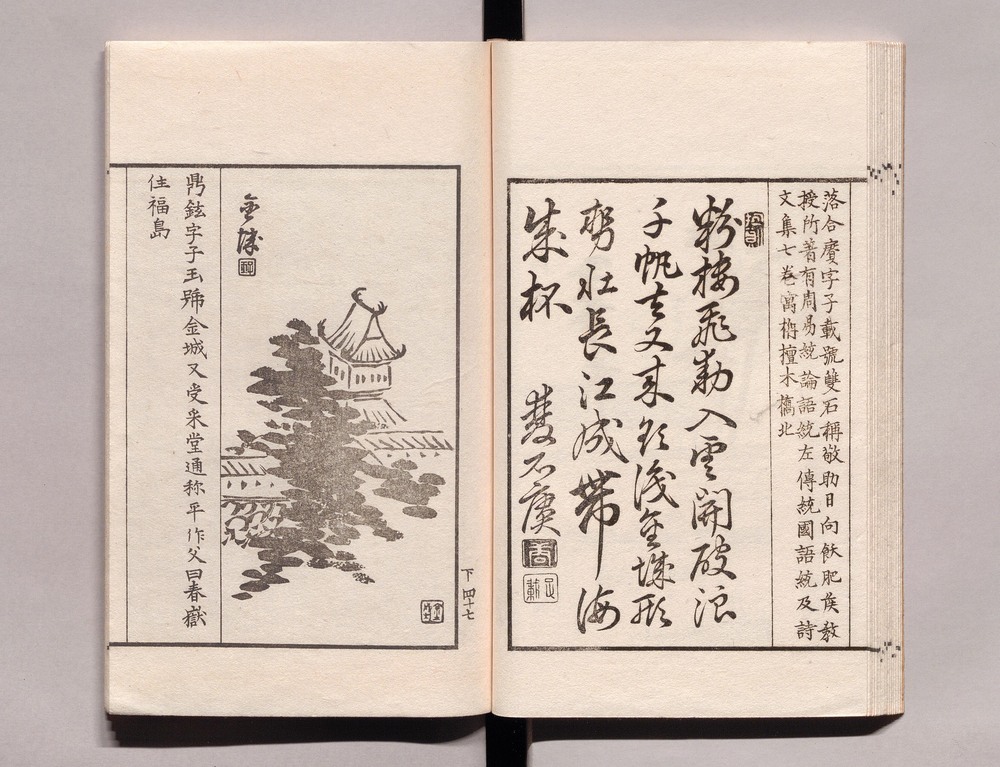 落合賡字子載號雙石稱敬助日向飫肥侯教
授所著有周易統論語統左傳統國語統及詩
文集七卷寓檀木橋北
粉棱飛動入雲開破浪
千帆去又來 淺金城形
勢壯長江成帶海
作杯
雙石賡
下 四十七
金城
鼎鉉字子玉號金城又受采堂通称平作父曰春嶽
住福島